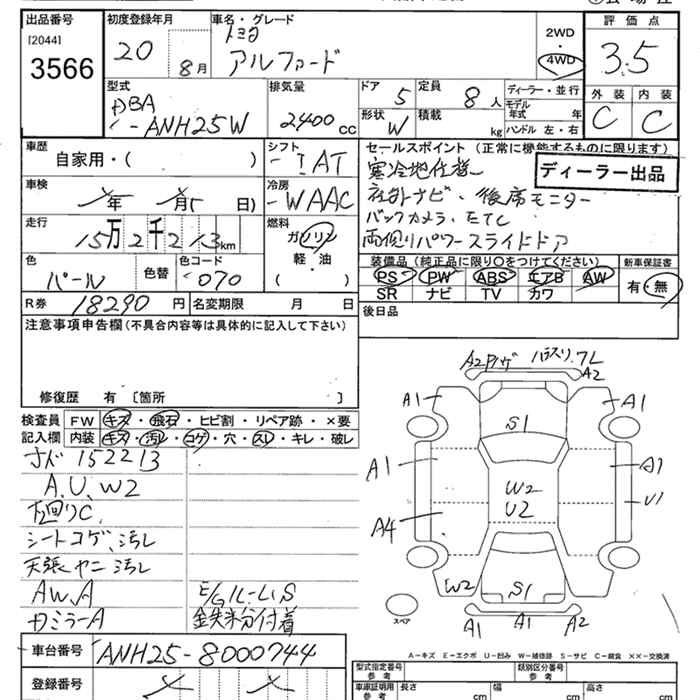 出品番号
[2044]
3566
初度登録年月
20
8月
車名・グレード
トヨタ
アルファード
2WD
・
4WD
評価点
3.5
外装 内装
C C
型式
DBA
-ANH25W
排気量
2400 cc
ドア
5
形状
W
定員
8人
積載
kg
ディーラー・並行
モデル年式 年
ハンドル 左・右
車歴
自家用・( )
シフト
IAT
セールスポイント (正常に機能するものに限ります)
寒冷地仕様
ディーラー出品
社外ナビ・後席モニター
バックカメラ、ETC
両側パワースライドドア
車検
年 月( 日)
冷房
WAAC
走行
15万2千213km
燃料
ガソリン
軽・油
( )
色
パール
色替
色コード
070
装備品 (純正品に限り〇をつけてください)
PS PW ABS エアB AW
SR ナビ TV カワ
新車保証書
有・無
R券 18290円
名変期限 月 日
後日品
注意事項申告欄 (不具合内容等は具体的に記入して下さい)
修復歴 有 〔箇所 〕
検査員記入欄
FW キズ・飛石・ヒビ割・リペア跡・×要
内装 キズ・汚れ・コゲ・穴・スレ・キレ・破レ
152213
A.U.W2
下回りC
シートコゲ、汚レ
天張ヤニ汚レ
AW.A
カミラーA
E/G
鉄粉分付着
A2 ハガスリ.ワレ
A2
A1 A1
S1
A1 A1
W2
U2
U1
A4
W2
S1
A1 A1 A2
スペア
A-キズ E-エクボ U-凹み W-補修跡 S-サビ C-腐食 ××-交換済
車台番号 ANH25-8000744
登録番号
型式指定番号
参考
類別区分番号
参考
車庫証明用
参考
長さ cm
幅 cm
高さ cm